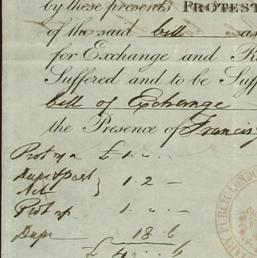 by these presents PROTEST
of the said bill as
for Exchange and R
Suffered and to be Suff
bill of Exchange
the Presence of Francis
Prot £1 " -
Dup & post
Act } 1. 2 -
Prot 1. " . -
Dupe 18. 6
£ 4 . . 6
PUBLIC LONDON